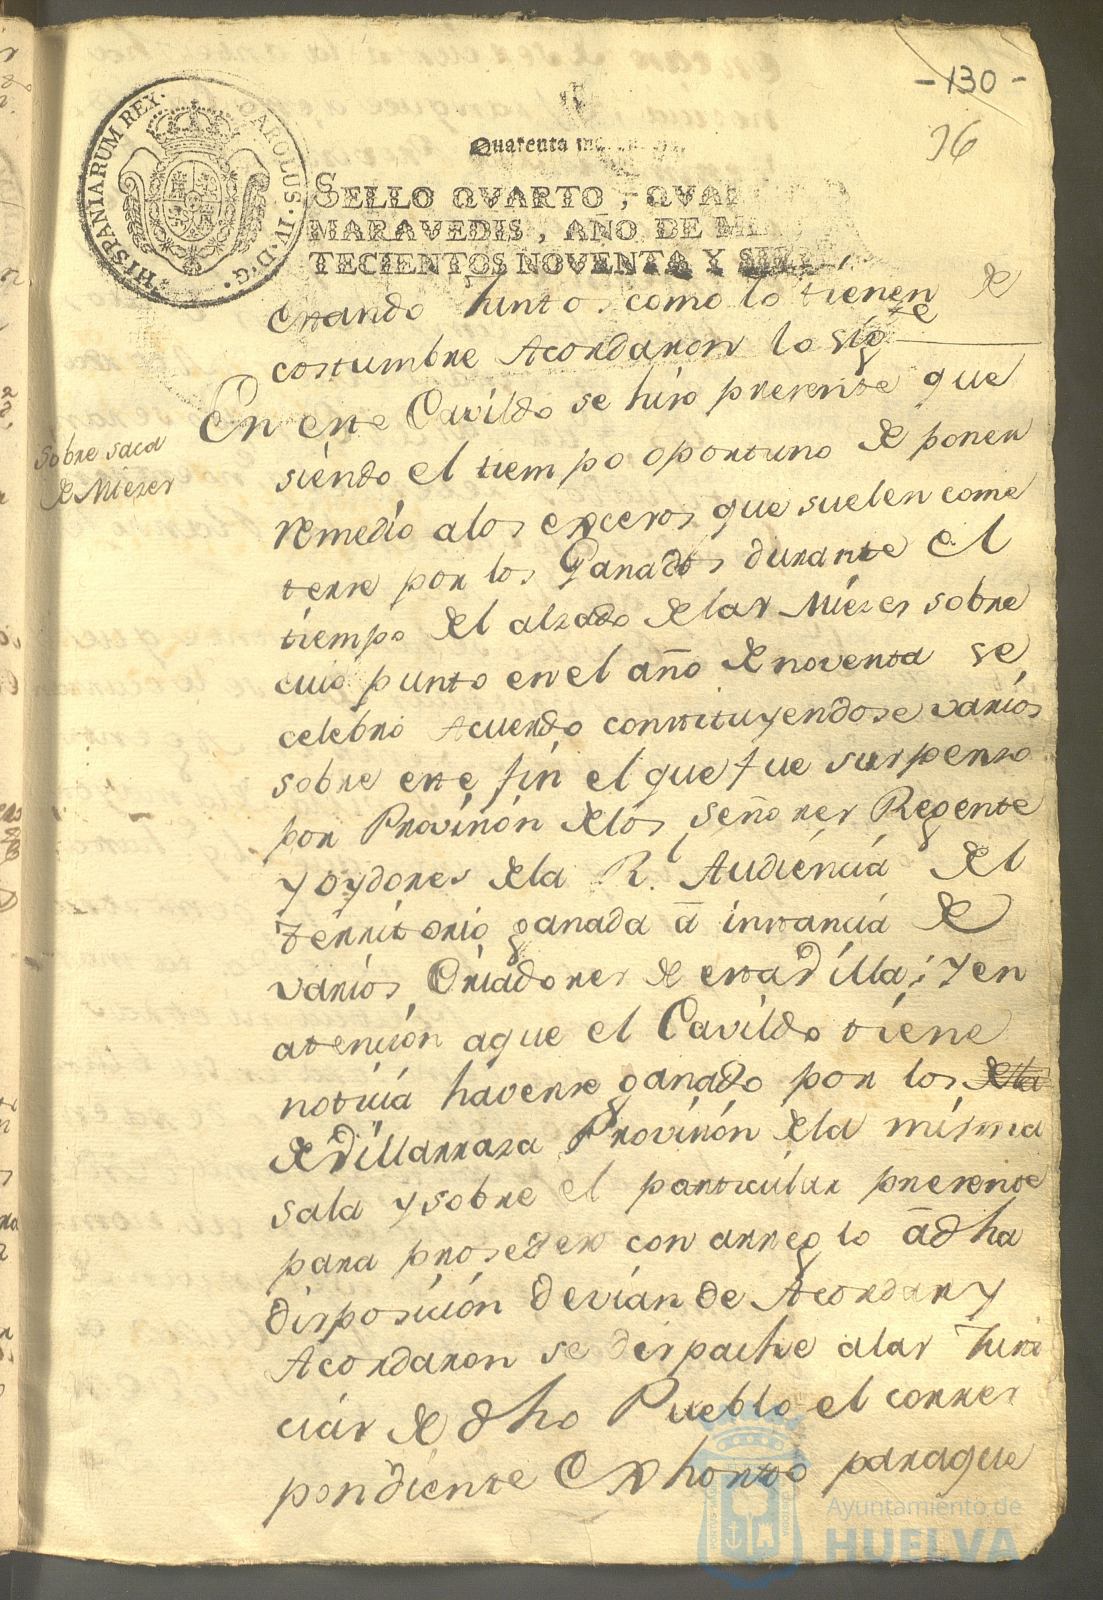 -130-
96
HISPANIARUM REX. CAROLUS. IV. D. G.
Quarenta
SELLO QVARTO, QVAR
MARAVEDIS, AÑO DE MIL
TECIENTOS NOVENTA Y SIETE
estando Juntos como lo tienen de
costumbre Acordaron lo sigte
En este Cavildo se hizo presente que
Sobre saca
de Miezes
siendo el tiempo oportuno de poner
remedio a los excesos que suelen come
terse por los Ganados durante el
tiempo del alzado delas Miezes sobre
cuio punto en el año de noventa se
celebró Acuerdo constituyendose varios
sobre este fin el que fue suspenso
por Provision delos Señores Regente
y oydores dela Rl. Audiencia del
Territorio ganada â instancia de
varios Criadores de esta Villa; y en
atención aque el Cavildo tiene
noticia haverse ganado por los desta
de Villarrasa Provision dela misma
sala y sobre el particular presente
para proseder con arreglo â dha
disposición devian de Acordar y
Acordaron se despache alas Justi
cias de dho Pueblo el corres
pondiente Exhorto paraque
Ayuntamiento de
HUELVA